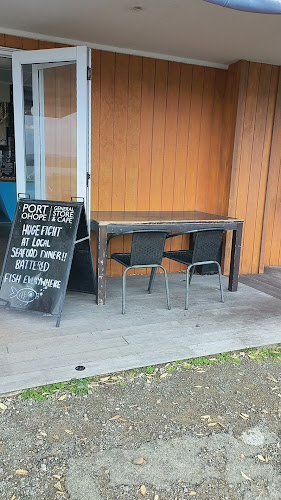 PORT OHOPE
GENERAL STORE & CAFE
HUGE FIGHT
AT LOCAL
SEAFOOD DINER!!
BATTERED
FISH EVERYWHERE